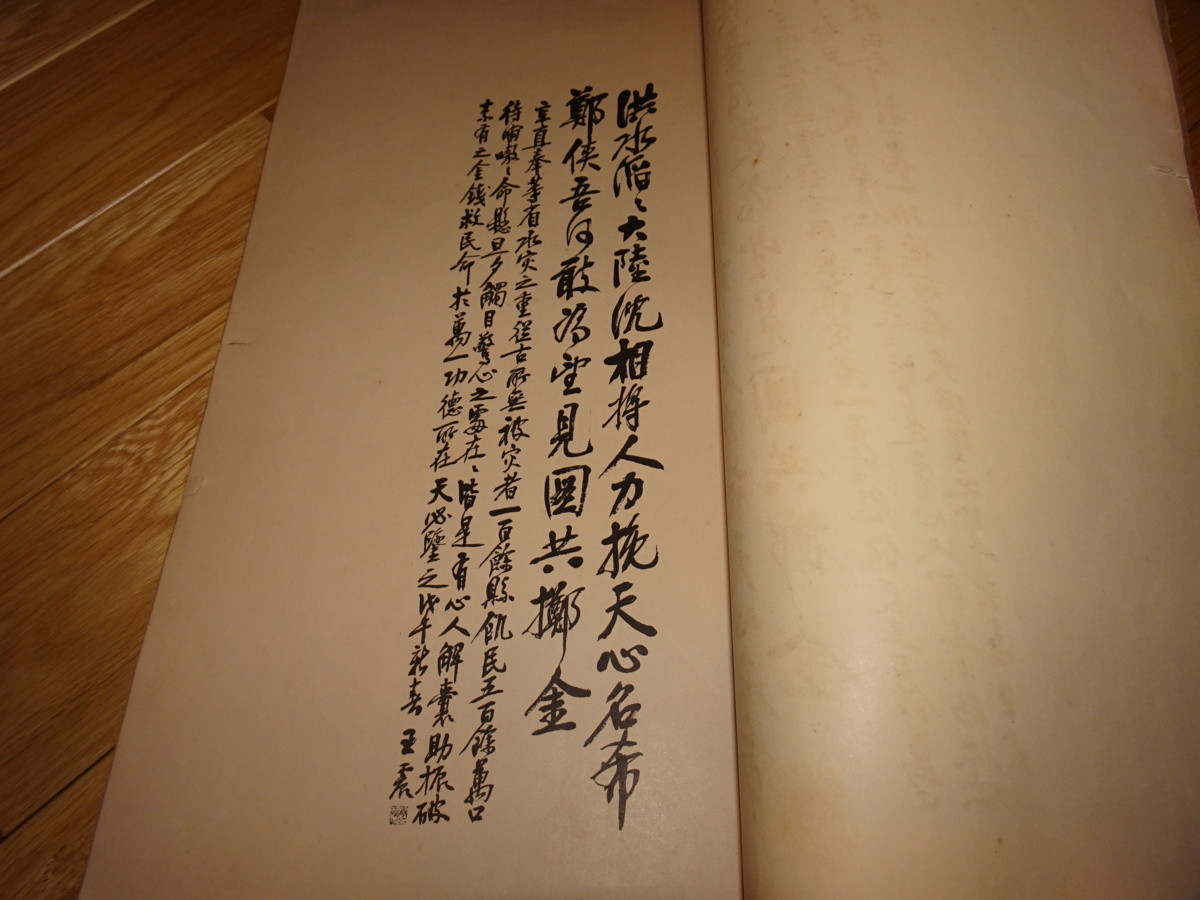 洪水滔〻大陸沈相將人力挽天心名希
鄭俠吾何敢為望見圖共擲金
京直奉等省水灾之重從古所無被灾者一百餘縣飢民五百餘萬口
待哺嗷〻命懸旦夕觸目驚心之處在〻皆是有心人解囊助振破
未有之金錢救民命於萬一功德所在天必鑒之戊午新春王震